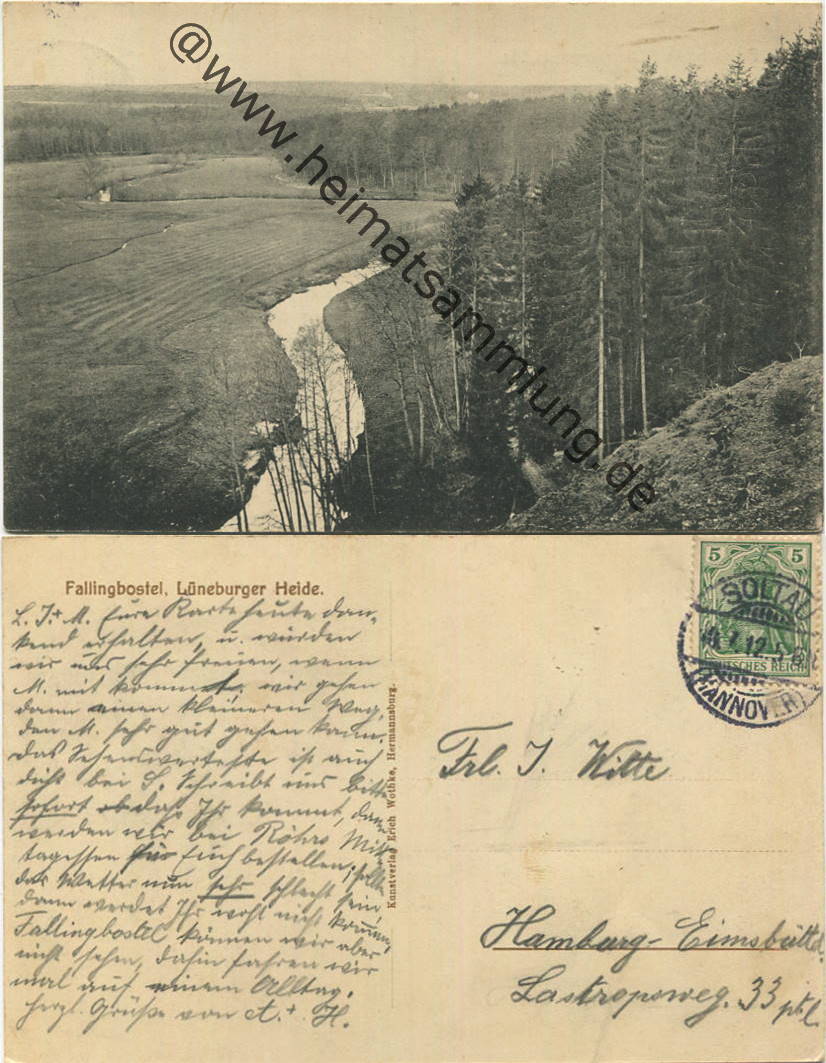 @www.heimatsammlung.de
Fallingbostel, Lüneburger Heide.
L. J. + M. Eure Karte heute dan-
kend erhalten, u. würden
wir uns sehr freuen, wenn
M. mit kommt. wir gehen
dann einen kleineren Weg,
den M. sehr gut gehen kann.
Das Sehenswerteste ist auch
dicht bei S. Schreibt uns bitte
sofort ob daß Ihr kommt, dan
werden wir bei Röhrs Mit-
tagessen für Euch bestellen; sollte
das Wetter nun sehr schlecht sein,
dann werdet Ihr wohl nicht kommen,
Fallingbostel können wir aber
nicht sehen, dahin fahren wir
mal auf einem Alltag.
Herzl. Grüße von A. + H.
Kunstverlag Erich Wothke, Hermannsburg.
5 5
DEUTSCHES REICH
SOLTAU
7.12.5
(HANNOVER)
Frl. J. Witte
Hamburg-Eimsbüttel
Lastropsweg. 33 ptr.